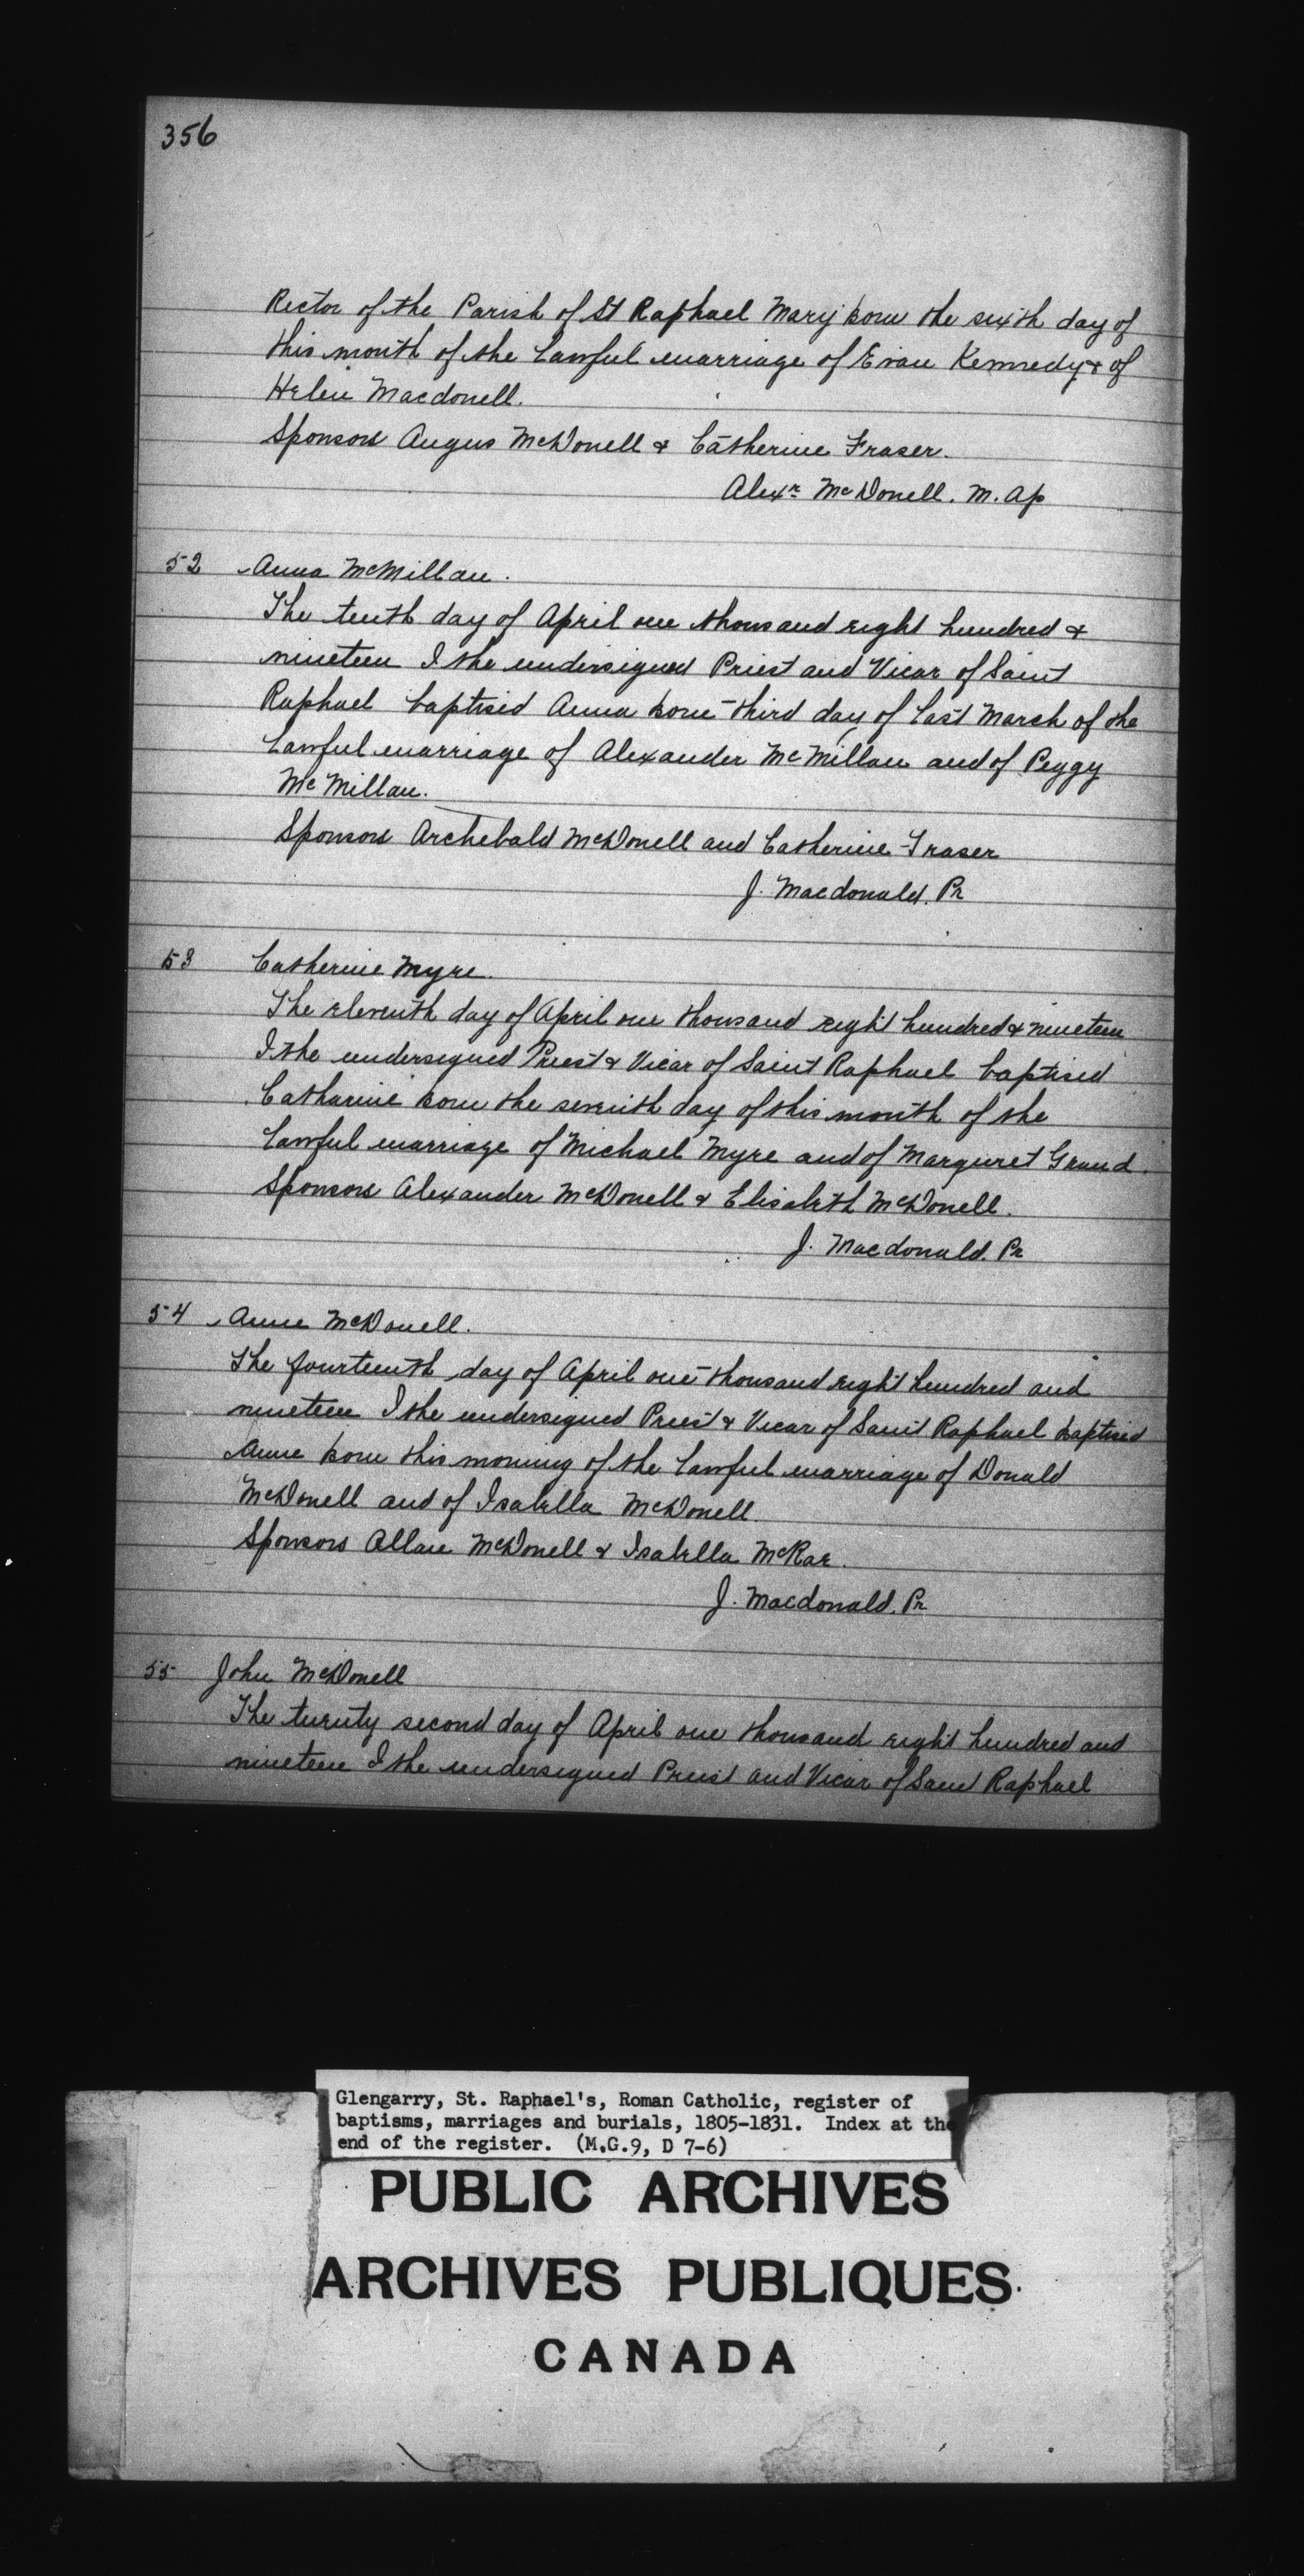 356
Rector of the Parish of St Raphael Mary born the sixth day of
this month of the Lawful marriage of Evan Kennedy & of
Helen Macdonell.
Sponsors Angus McDonell & Catherine Fraser.
Alexr McDonell. M. Ap
52 Anna McMillan.
The tenth day of April one thousand eight hundred &
nineteen I the undersigned Priest and Vicar of Saint
Raphael baptised Anna born third day of last March of the
Lawful marriage of Alexander McMillan and of Peggy
McMillan.
Sponsors Archebald McDonell and Catherine Fraser
J. Macdonald. Pr
53 Catherine Myre.
The eleventh day of April one thousand eight hundred & nineteen
I the undersigned Priest & Vicar of Saint Raphael baptised
Catharine born the seventh day of this month of the
Lawful marriage of Michael Myre and of Margaret Grand.
Sponsors Alexander McDonell & Elisabeth McDonell.
J. Macdonald. Pr
54 Anne McDonell.
The fourteenth day of April one thousand eight hundred and
nineteen I the undersigned Priest & Vicar of Saint Raphael baptised
Anne born this morning of the Lawful marriage of Donald
McDonell and of Isabella McDonell
Sponsors Allan McDonell & Isabella McRae.
J. Macdonald. Pr
55 John McDonell
The twenty second day of April one thousand eight hundred and
nineteen I the undersigned Priest and Vicar of Saint Raphael
Glengarry, St. Raphael's, Roman Catholic, register of
baptisms, marriages and burials, 1805-1831. Index at the
end of the register. (M.G.9, D 7-6)
PUBLIC ARCHIVES
ARCHIVES PUBLIQUES
CANADA